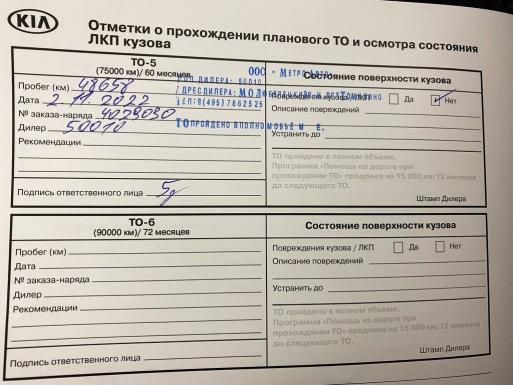 KIA
Отметки о прохождении планового ТО и осмотра состояния
ЛКП кузова
ТО-5
(75000 км)/ 60 месяцев
Пробег (км) 48658
Дата 2.11.2022
№ заказа-наряда 4029030
Дилер 50010
Рекомендации
Подпись ответственного лица
ООО "Метро
КОД ДИЛЕРА: 50010
ТЕЛ:8(495)7862525
ТО ПРОЙДЕНО В ПОЛНОМ ОБЪЕМЕ.
Состояние поверхности кузова
Повреждения кузова / ЛКП Да Нет
Описание повреждений
Устранить до
ТО пройдено в полном объеме.
Программа «Помощь на дороге при
прохождении ТО» продлена на 15 000 км/12 месяцев
до следующего ТО.
Штамп Дилера
ТО-6
(90000 км)/ 72 месяцев
Пробег (км)
Дата
№ заказа-наряда
Дилер
Рекомендации
Подпись ответственного лица
Состояние поверхности кузова
Повреждения кузова / ЛКП Да Нет
Описание повреждений
Устранить до
ТО пройдено в полном объеме.
Программа «Помощь на дороге при
прохождении ТО» продлена на 15 000 км/12 месяцев
до следующего ТО.
Штамп Дилера